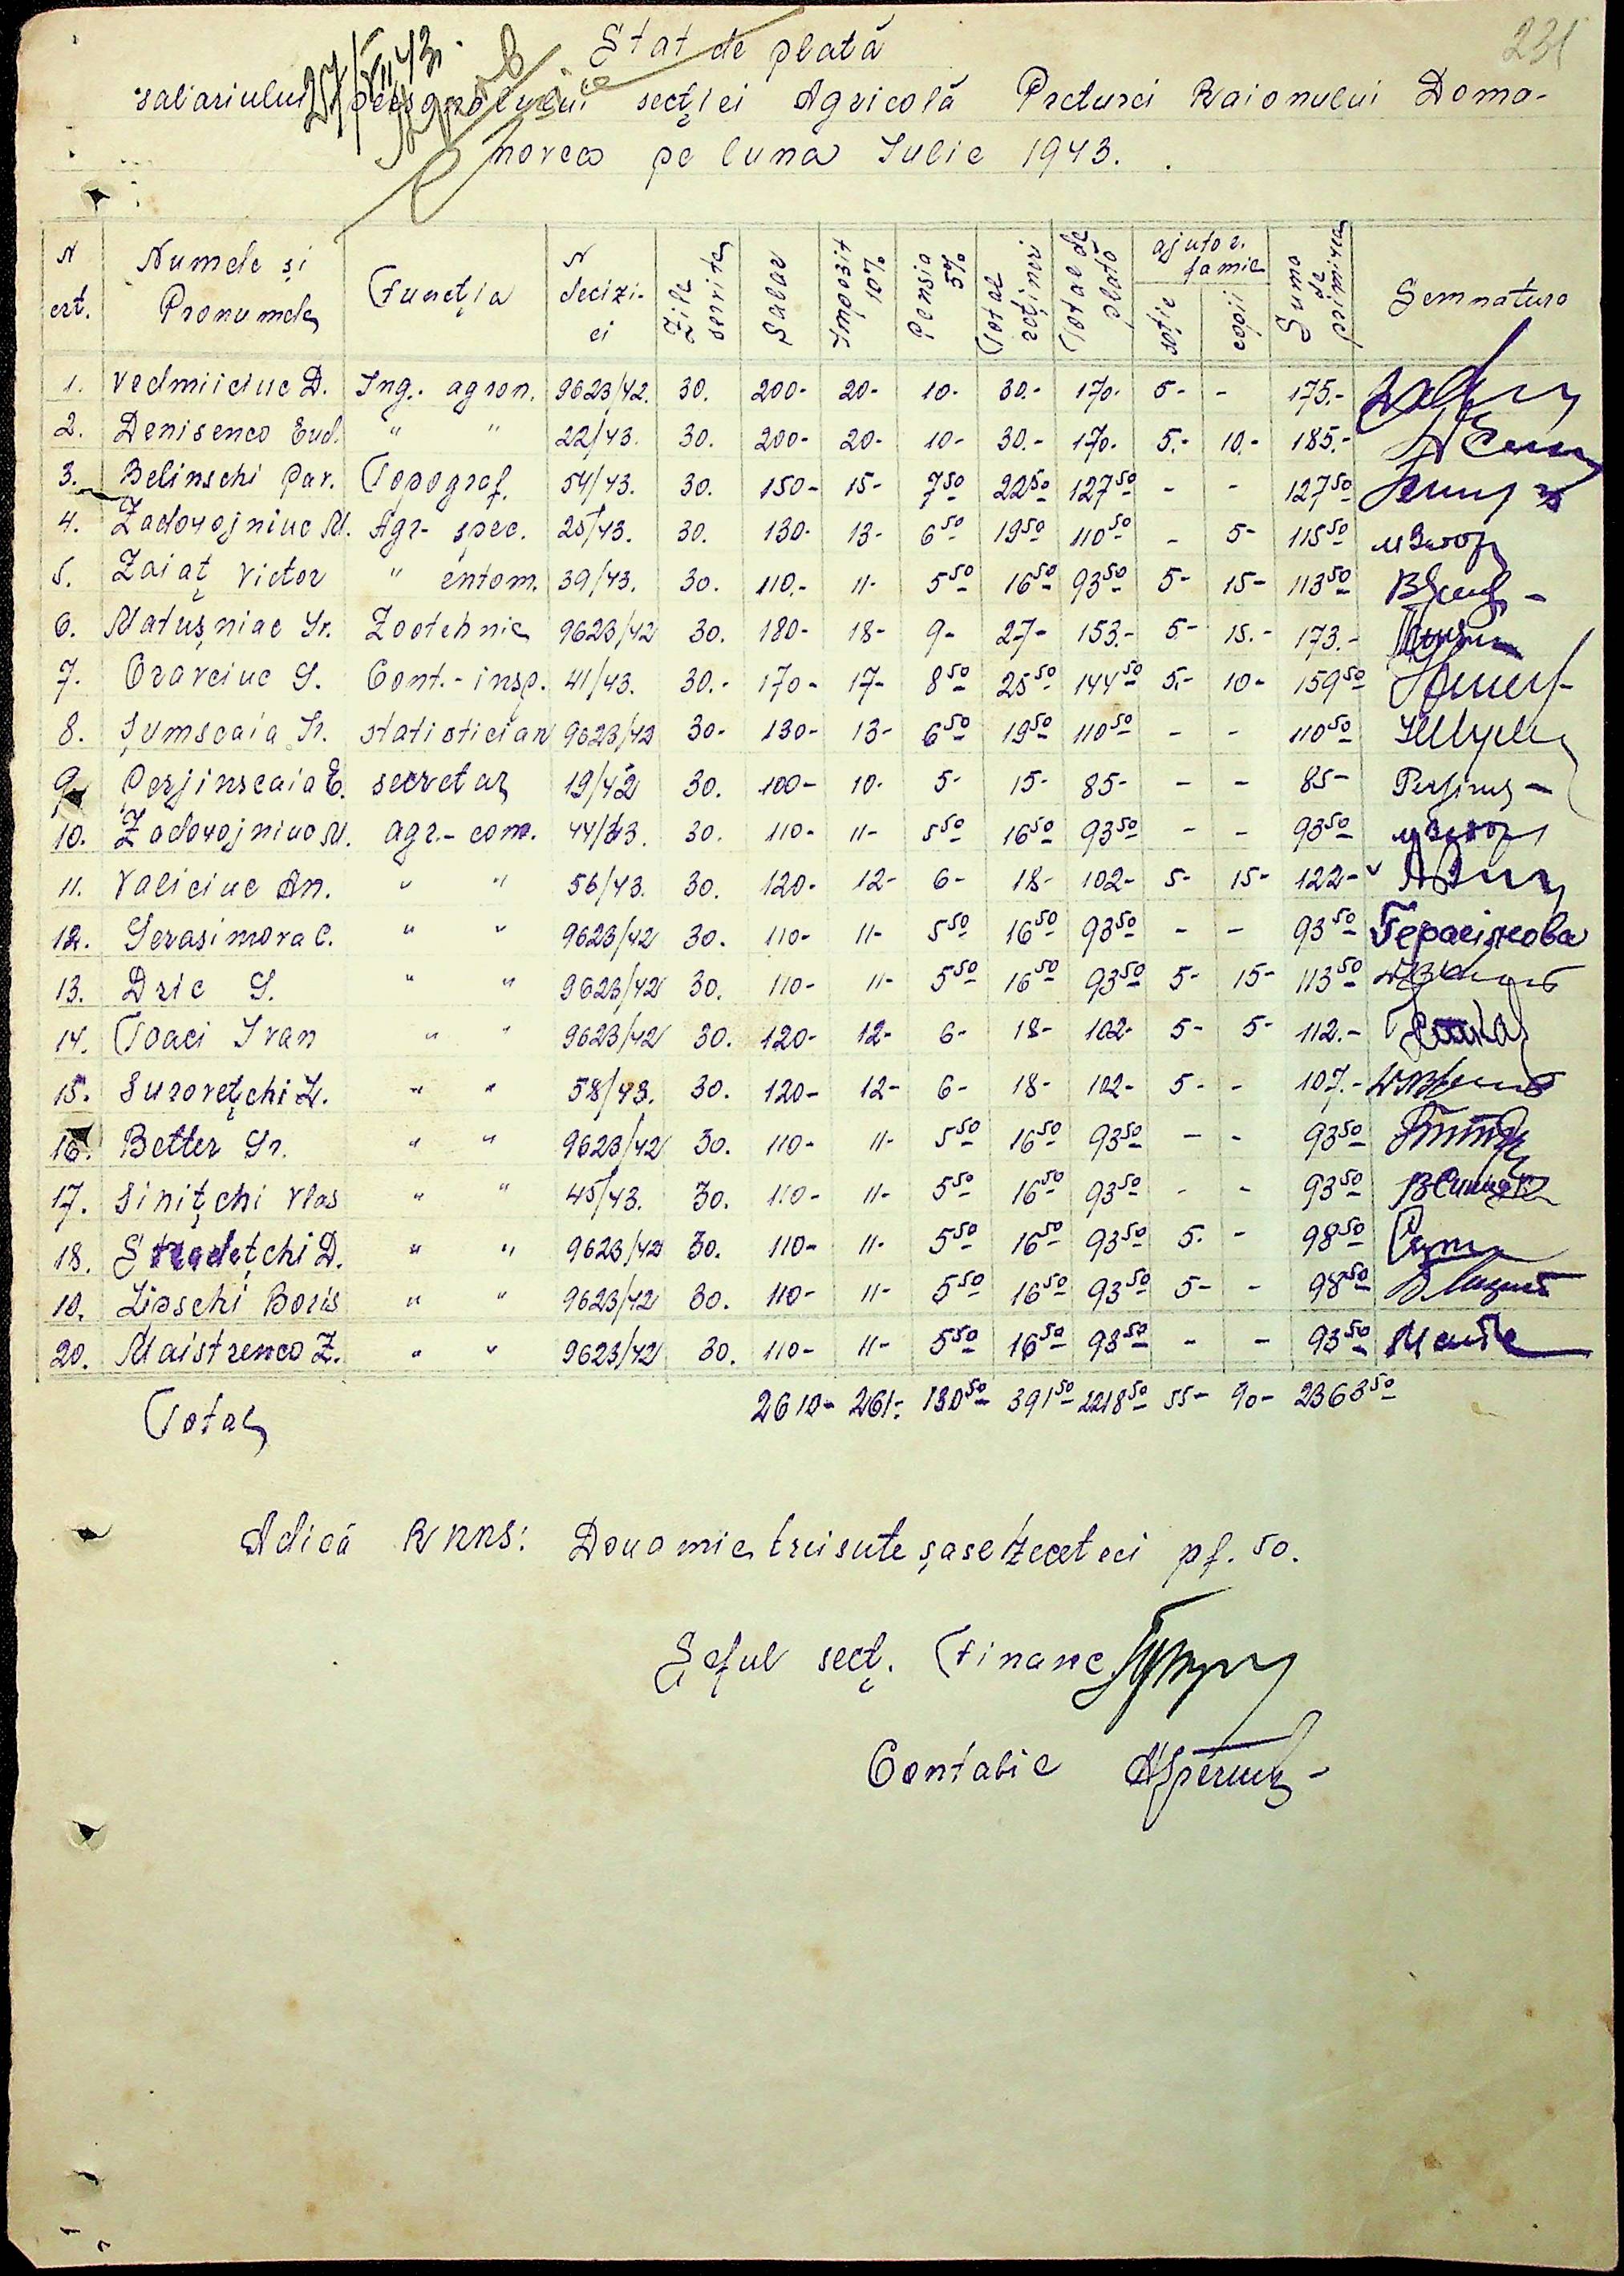 231
27/VII 43.
Stat de plată
salariului personalului secţiei Agricolă Preturei Raionului Doma-
novca pe luna Iulie 1943.
N crt. Numele şi Pronumele Funcţia N decizi-ei Zile servite Salar Impozit 10% Pensia 5% Total reţineri Total de plată ajutor. famil. soţie copii Suma de primirea Semnatura
1. Vedmiiciuc D. Ing. agron. 9623/42. 30. 200- 20- 10- 30.- 170. 5- - 175.-
2. Denisenco Eud. " " 22/43. 30. 200- 20- 10- 30.- 170. 5.- 10.- 185.-
3. Belinschi Pav. Topograf. 54/43. 30. 150- 15- 7 50 22 50 127 50 - - 127 50
4. Zadorojniuc M. Agr- spec. 25/43. 30. 130- 13- 6 50 19 50 110 50 - 5- 115 50
5. Zaiaţ Victor " entom. 39/43. 30. 110.- 11- 5 50 16 50 93 50 5- 15- 113 50
6. Matuşniac Gr. Zootehnic 9623/42 30. 180- 18- 9- 27- 153.- 5- 15.- 173.-
7. Cravciuc S. Cont.- insp. 41/43. 30.- 170- 17- 8 50 25 50 144 50 5.- 10- 159 50
8. Şumscaia Ir. statistician 9623/42 30- 130- 13- 6 50 19 50 110 50 - - 110 50
9. Perjinscaia E. secretar 19/42 30. 100- 10. 5- 15- 85- - - 85-
10. Zadorojniuc M. agr.- com. 44/43. 30. 110- 11- 5 50 16 50 93 50 - - 93 50
11. Valiciuc An. " " 56/43. 30. 120- 12- 6- 18- 102- 5- 15- 122-
12. Gerasimova C. " " 9623/42 30. 110- 11- 5 50 16 50 93 50 - - 93 50 Герасiмова
13. Dzic G. " " 9623/42 30. 110- 11- 5 50 16 50 93 50 5- 15- 113 50
14. Tcaci Ivan " " 9623/42 30. 120- 12- 6- 18- 102- 5- 5- 112.-
15. Suroveţchi L. " " 58/43. 30. 120- 12- 6- 18- 102- 5- - 107.-
16. Better Gr. " " 9623/42 30. 110- 11- 5 50 16 50 93 50 - - 93 50
17. Siniţchi Vlas " " 45/43. 30. 110- 11- 5 50 16 50 93 50 - - 93 50
18. D. " " 9623/42 30. 110- 11- 5 50 16 50 93 50 5. - 98 50
19. Lipschi Boris " " 9623/42 30. 110- 11- 5 50 16 50 93 50 5- - 98 50
20. Maistrenco Z. " " 9623/42 30. 110- 11- 5 50 16 50 93 50 - - 93 50
Total 2610- 261- 130 50 391 50 2218 50 55- 90- 2363 50
Adică RKKS: Doua mie treisute şasezecetrei pf. 50.
Şeful secţ. Financ.
Contabil